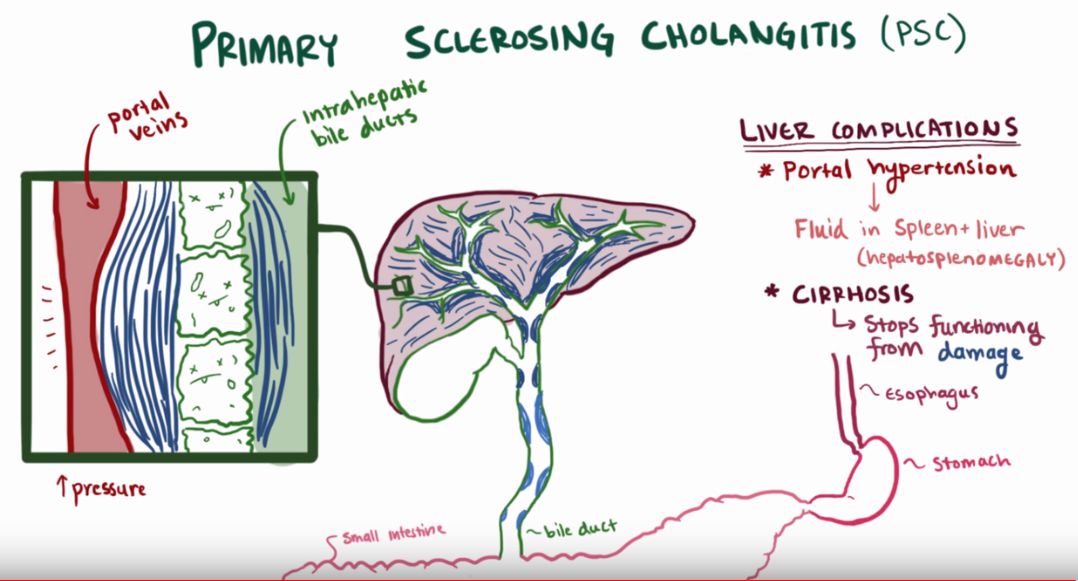 PRIMARY SCLEROSING CHOLANGITIS (PSC)
portal
veins
intrahepatic
bile ducts
↑ pressure
LIVER COMPLICATIONS
* Portal hypertension
↓
Fluid in Spleen + liver
(hepatosplenoMEGALY)
* CIRRHOSIS
↳ Stops functioning
from damage
~ Esophagus
~ Stomach
Small intestine
~ bile duct